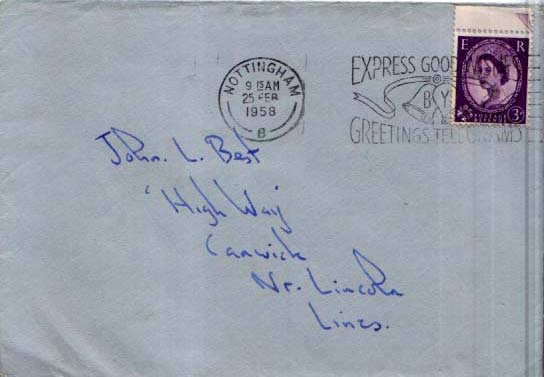 NOTTINGHAM
9 15 AM
25 FEB
1958
B
EXPRESS GOOD
BY
GREETINGS TELEGRAMS
E R
3D
John. L. Best
'High Way'
Canwick
Nr. Lincoln
Lincs.